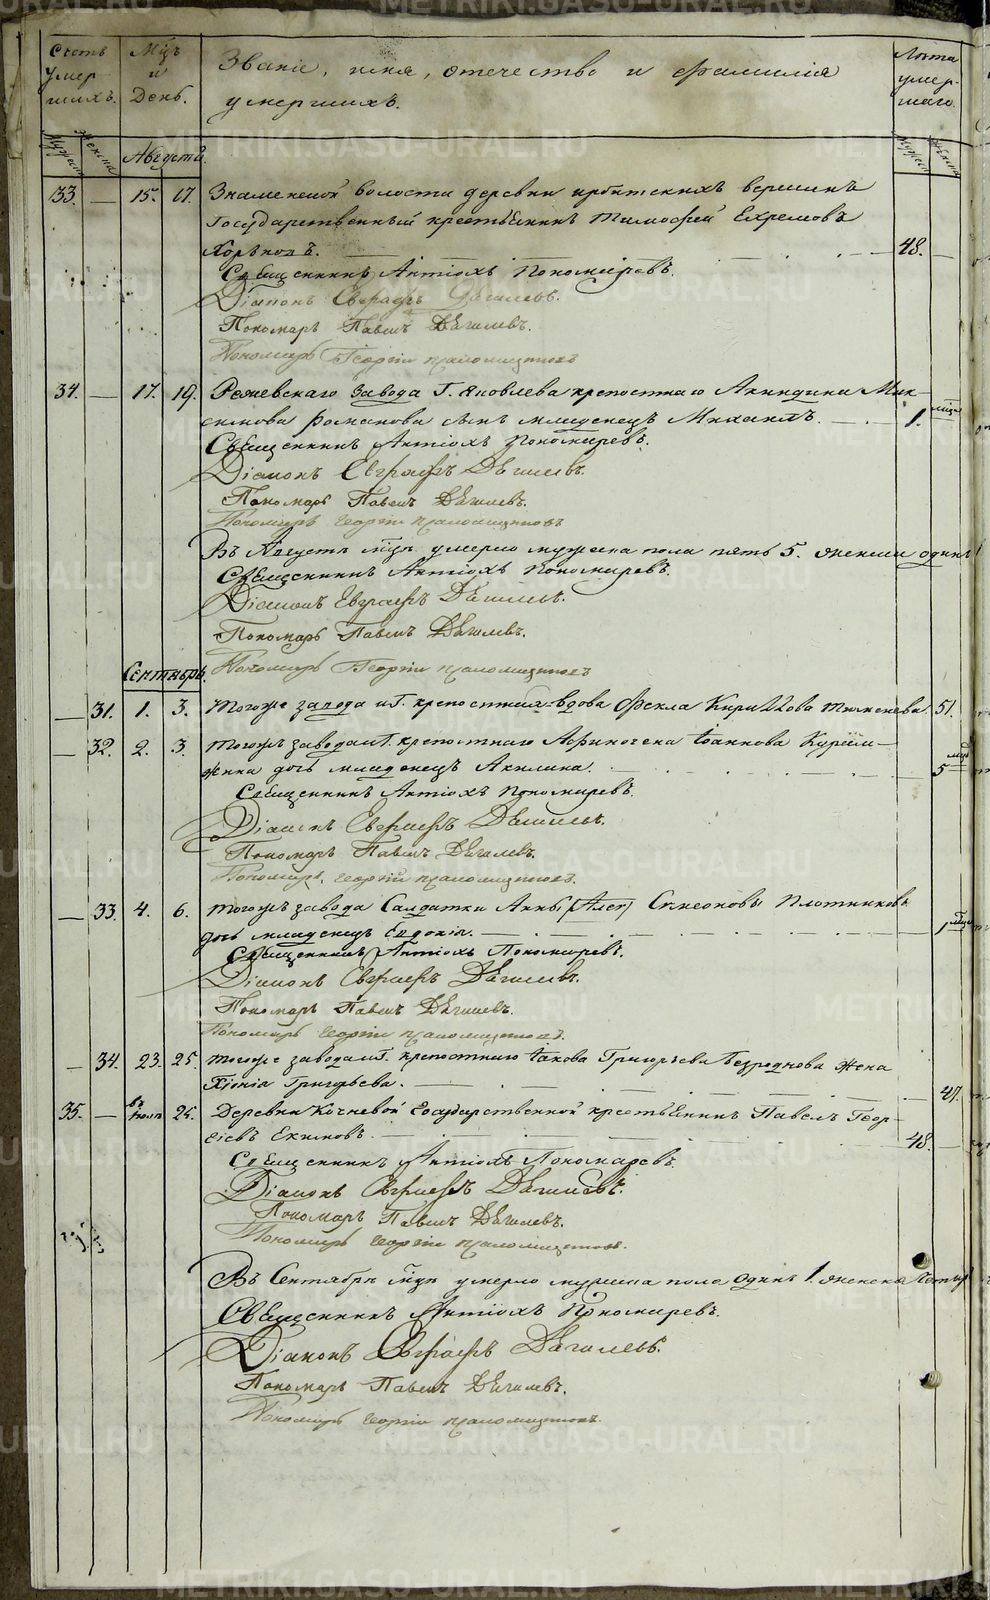 Счетъ умер шихъ.
Мцъ и День.
Званіе, имя, отечество и фамилія умершихъ.
Лѣта умер- шаго.
Мужеска
Женска
Августъ
33. — 15. 17. Знаменской волости деревни ирбитскихъ вершинъ
Государственный крестьянинъ Тимофей Ефремовъ
Хорьковъ. 48. —
Священникъ Антіохъ Пономаревъ.
Діаконъ Евграфъ Дягилевъ.
Пономарь Павелъ Дягилевъ.
Пономарь Георгій
34. — 17. 19. Режевскаго завода Г. Яковлева крепостнаго Акиндина Мак-
симова Романова сынъ младенецъ Михаилъ. 1. мца
Священникъ Антіохъ Пономаревъ.
Діаконъ Евграфъ Дягилевъ.
Пономарь Павелъ Дягилевъ.
Пономарь Георгій
Въ Августѣ мцѣ умерло мужеска пола пять 5. женска одинъ
Священникъ Антіохъ Пономаревъ.
Діаконъ Евграфъ Дягилевъ.
Пономарь Павелъ Дягилевъ.
Пономарь Георгій
Сентябрь.
— 31. 1. 3. Тогоже завода и Г. крепостная вдова Фекла Кирилова 51.
— 32. 2. 3. Тогожъ завода и Г. крепостнаго Афиногена Іоаннова
дочь младенецъ Акилина. 5 мцъ
Священникъ Антіохъ Пономаревъ.
Діаконъ Евграфъ Дягилевъ.
Пономарь Павелъ Дягилевъ.
Пономарь Георгій
— 33. 4. 6. Тогожъ завода Салдатки Анны Симеоновы Плотниковы
дочь младенецъ Евдокія. 1 мцъ
Священникъ Антіохъ Пономаревъ.
Діаконъ Евграфъ Дягилевъ.
Пономарь Павелъ Дягилевъ.
Пономарь Георгій
— 34. 23. 25. Тогоже завода и Г. крепостнаго Іакова Григорьева Безроднова жена
Хіонія Григорьева. 47.
35. — въ 25. Деревни Кочневой Государственной крестьянинъ Павелъ Геор-
гіевъ Екимовъ. 48. —
Священникъ Антіохъ Пономаревъ.
Діаконъ Евграфъ Дягилевъ.
Пономарь Павелъ Дягилевъ.
Пономарь Георгій
Въ Сентябрѣ мцѣ умерло мужеска пола одинъ 1. женска
Священникъ Антіохъ Пономаревъ.
Діаконъ Евграфъ Дягилевъ.
Пономарь Павелъ Дягилевъ.
Пономарь Георгій
METRIKI.GASO-URAL.RU